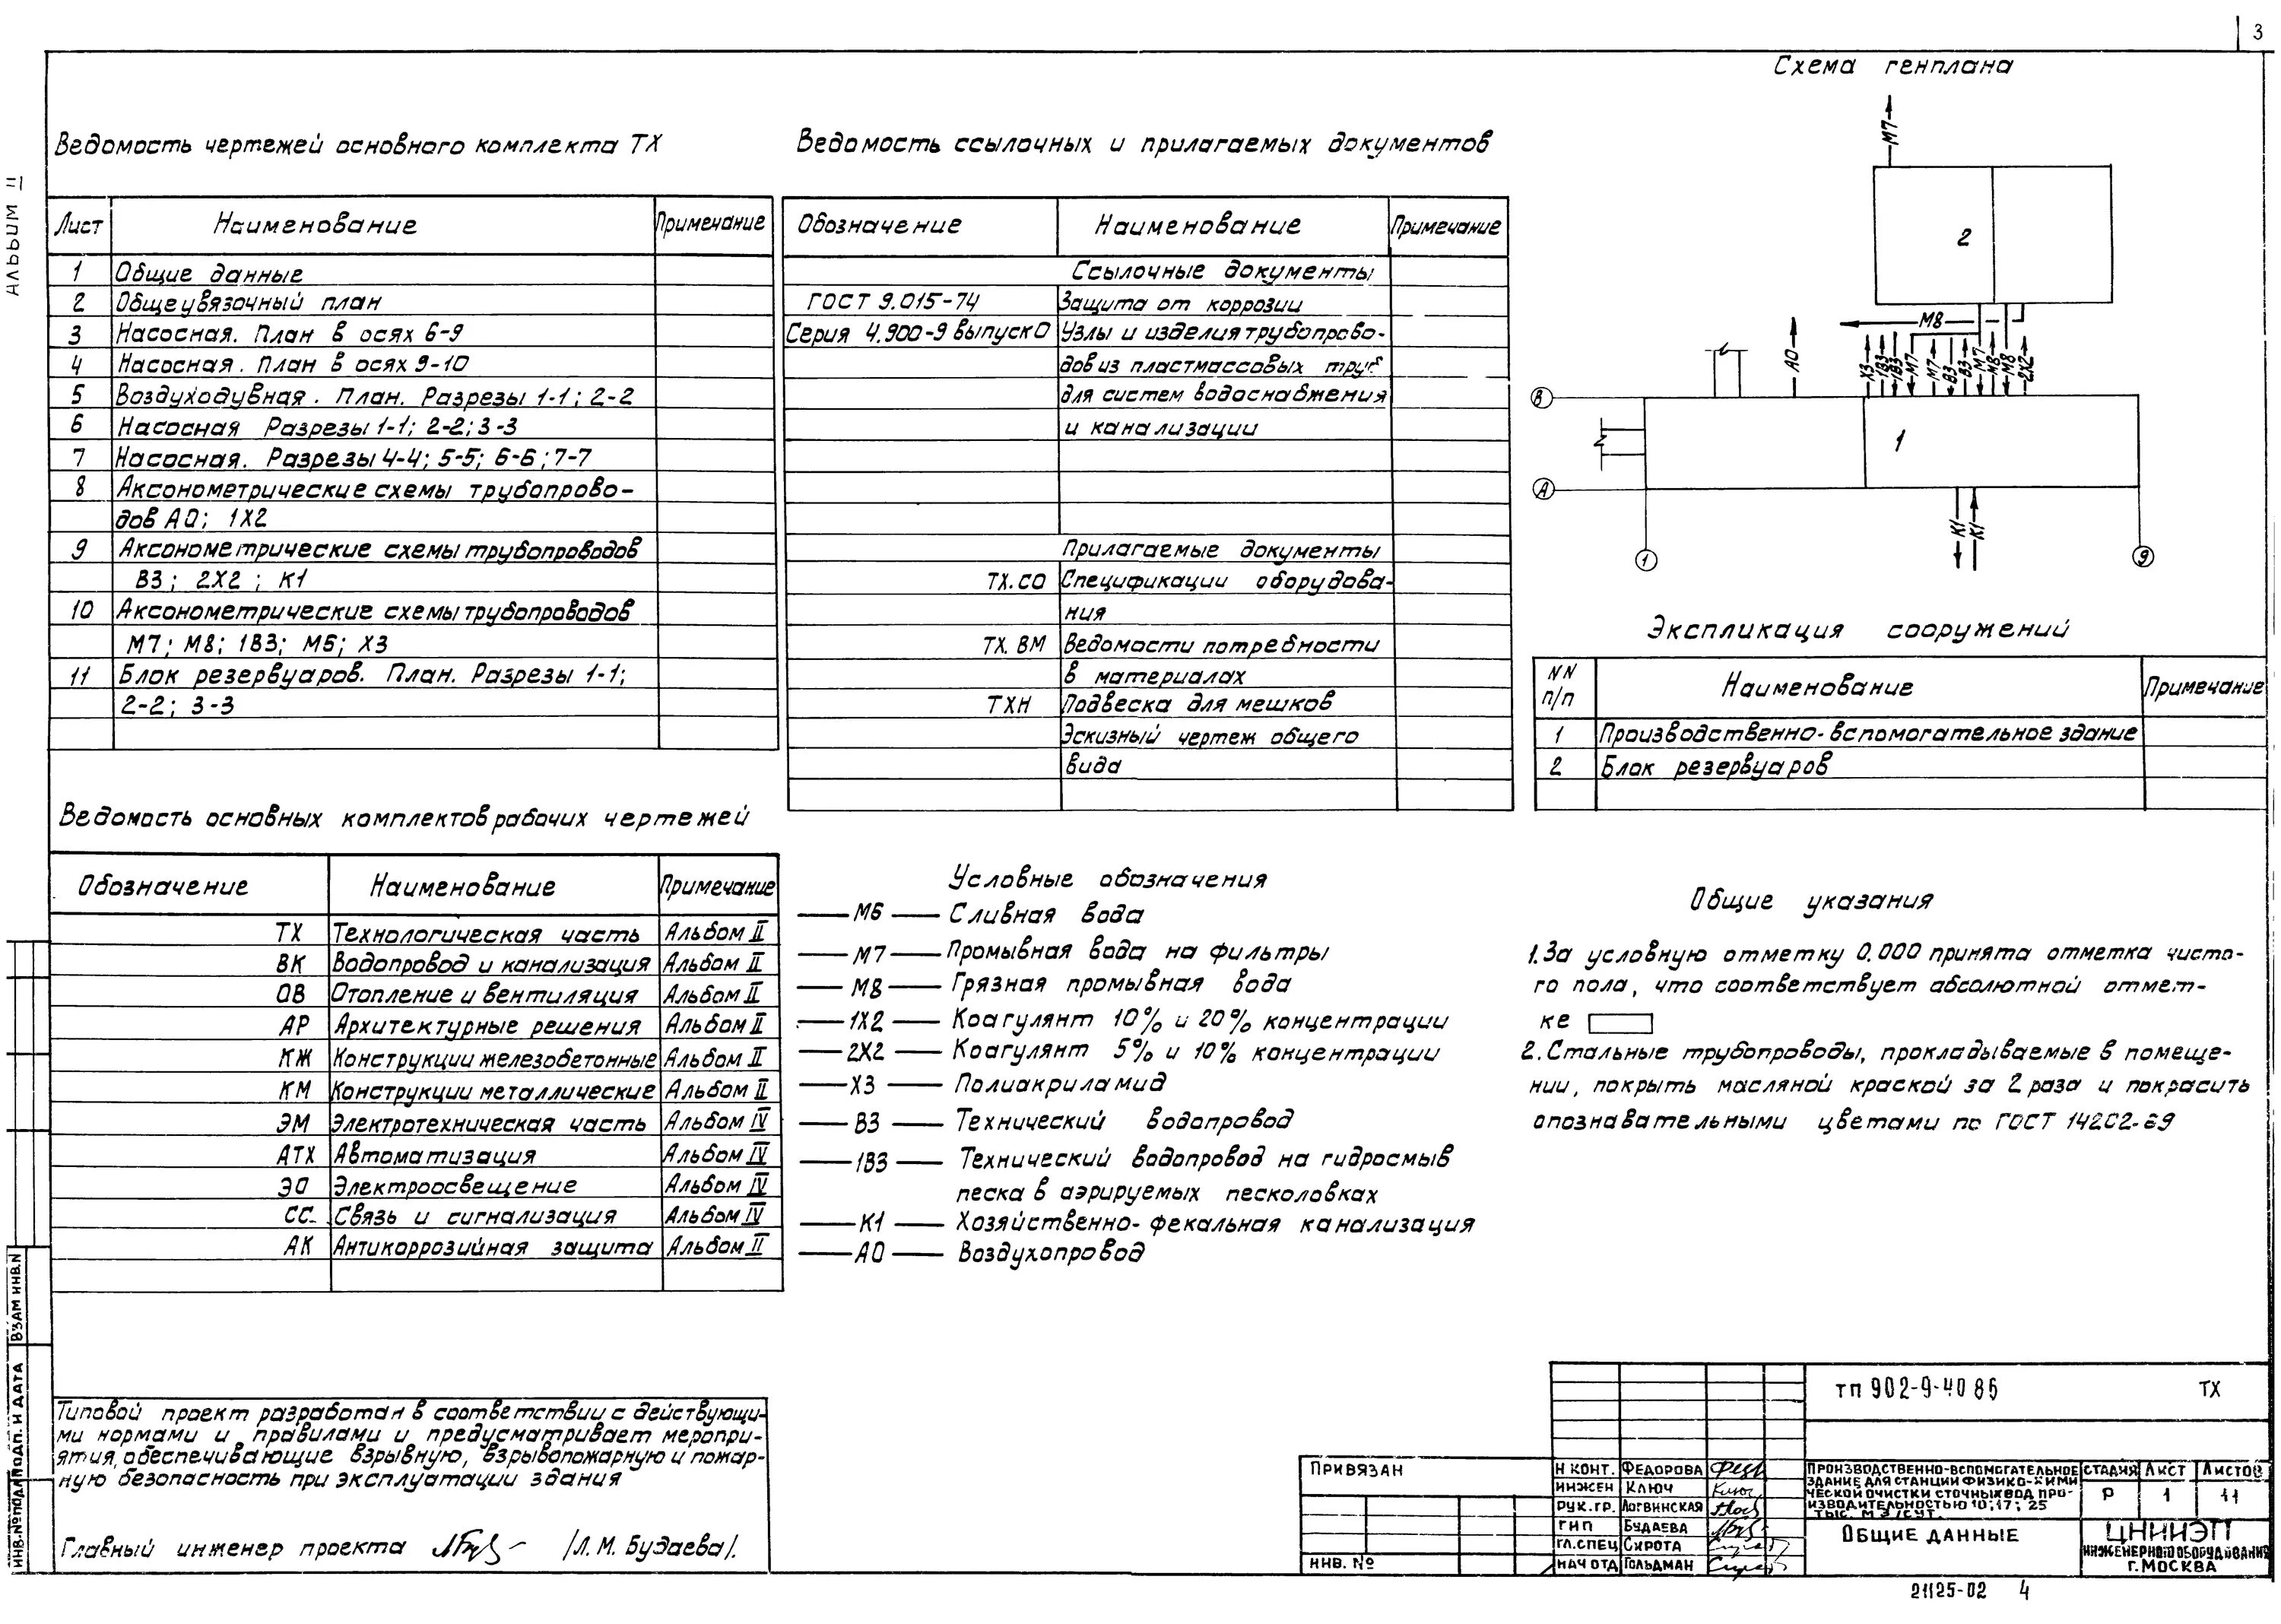 3
Альбом II
Ведомость чертежей основного комплекта ТХ
Лист Наименование Примечание
1 Общие данные
2 Общеувязочный план
3 Насосная. План в осях 6-9
4 Насосная. План в осях 9-10
5 Воздуходувная. План. Разрезы 1-1; 2-2
6 Насосная Разрезы 1-1; 2-2; 3-3
7 Насосная. Разрезы 4-4; 5-5; 6-6; 7-7
8 Аксонометрические схемы трубопрово-
дов А0; 1Х2
9 Аксонометрические схемы трубопроводов
В3; 2Х2; К1
10 Аксонометрические схемы трубопроводов
М7; М8; 1В3; М6; Х3
11 Блок резервуаров. План. Разрезы 1-1;
2-2; 3-3
Ведомость ссылочных и прилагаемых документов
Обозначение Наименование Примечание
Ссылочные документы
ГОСТ 9.015-74 Защита от коррозии
Серия 4.900-9 выпуск 0 Узлы и изделия трубопрово-
дов из пластмассовых труб
для систем водоснабжения
и канализации
Прилагаемые документы
ТХ.СО Спецификации оборудова-
ния
ТХ.ВМ Ведомости потребности
в материалах
ТХН Подвеска для мешков
Эскизный чертеж общего
вида
Схема генплана
М7
2
М8
А0
Х3 1В3 1В3 М7 М7 В3 В3 М7 М8 М8 2Х2
В
1
А
К1 К1
1
9
Экспликация сооружений
NN п/п Наименование Примечание
1 Производственно-вспомогательное здание
2 Блок резервуаров
Ведомость основных комплектов рабочих чертежей
Обозначение Наименование Примечание
ТХ Технологическая часть Альбом II
ВК Водопровод и канализация Альбом II
ОВ Отопление и вентиляция Альбом II
АР Архитектурные решения Альбом II
КЖ Конструкции железобетонные Альбом II
КМ Конструкции металлические Альбом II
ЭМ Электротехническая часть Альбом IV
АТХ Автоматизация Альбом IV
ЭО Электроосвещение Альбом IV
СС Связь и сигнализация Альбом IV
АК Антикоррозийная защита Альбом II
Условные обозначения
М6 Сливная вода
М7 Промывная вода на фильтры
М8 Грязная промывная вода
1Х2 Коагулянт 10% и 20% концентрации
2Х2 Коагулянт 5% и 10% концентрации
Х3 Полиакриламид
В3 Технический водопровод
1В3 Технический водопровод на гидросмыв
песка в аэрируемых песколовках
К1 Хозяйственно-фекальная канализация
А0 Воздухопровод
Общие указания
1. За условную отметку 0.000 принята отметка чисто-
го пола, что соответствует абсолютной отмет-
ке
2. Стальные трубопроводы, прокладываемые в помеще-
нии, покрыть масляной краской за 2 раза и покрасить
опознавательными цветами по ГОСТ 14202-69
Типовой проект разработан в соответствии с действующи-
ми нормами и правилами и предусматривает меропри-
ятия, обеспечивающие взрывную, взрывопожарную и пожар-
ную безопасность при эксплуатации здания
Главный инженер проекта /Л.М. Будаева/.
Взам инв.N
Подп. и дата
Инв.№ подл
Привязан
Инв. №
Н конт. Федорова
Инжен Ключ
Рук.гр. Логвинская
ГИП Будаева
Гл.спец Сирота
Нач отд Гольдман
ТП 902-9-40 86 ТХ
Производственно-вспомогательное
здание для станции физико-хими
ческой очистки сточных вод про-
изводительностью 10; 17; 25
тыс. м3/сут.
Стадия Лист Листов
Р 1 11
Общие данные
ЦНИИЭП
инженерного оборудования
г. Москва
21125-02 4